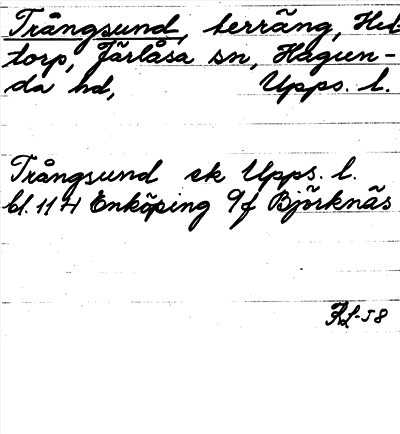 Trångsund, terräng, Hed-
torp, Järlåsa sn, Hagun-
da hd, Upps. l.
Trångsund ek Upps. l.
bl. 11 H Enköping 9f Björknäs
RL-58